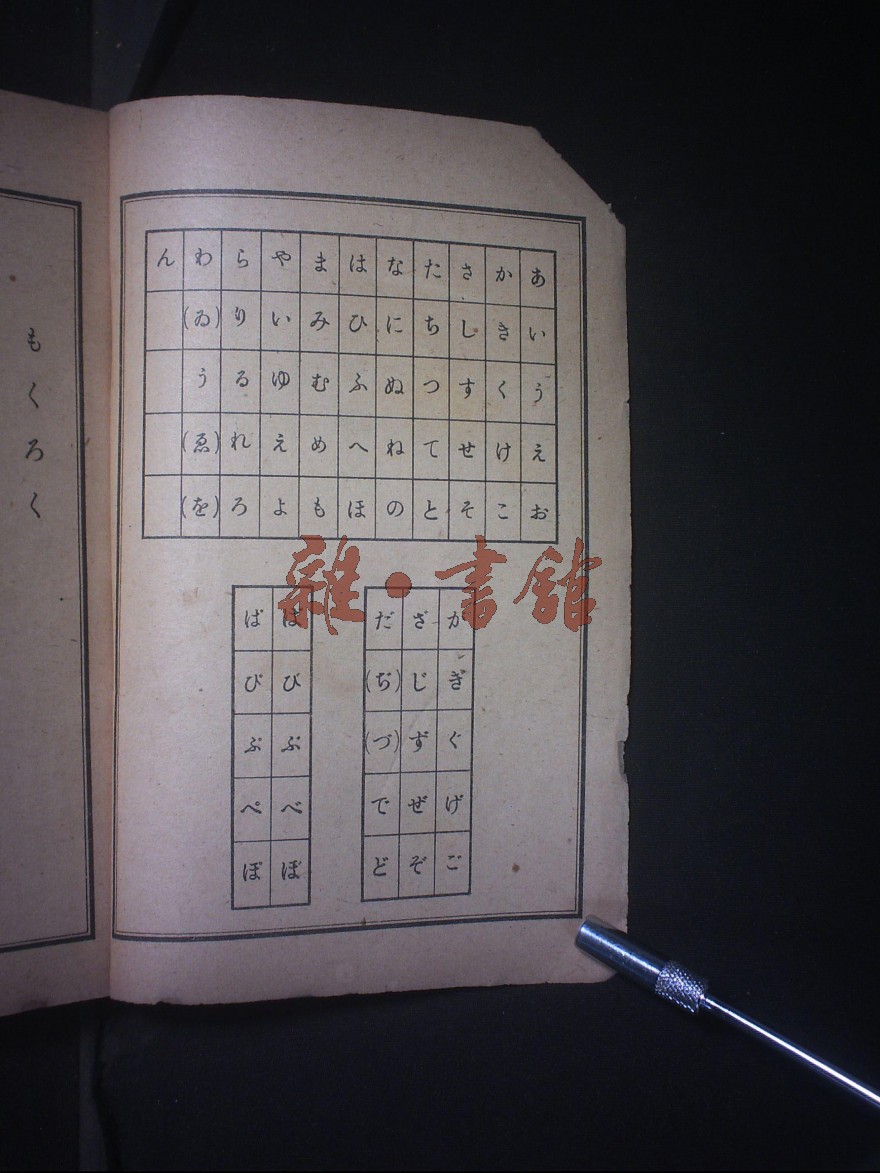 あいうえお
かきくけこ
さしすせそ
たちつてと
なにぬねの
はひふへほ
まみむめも
やいゆえよ
らりるれろ
わ(ゐ)う(ゑ)(を)
ん
がぎぐげご
ざじずぜぞ
だ(ぢ)(づ)でど
ばびぶべぼ
ぱぴぷぺぽ
もくろく
雜·書館